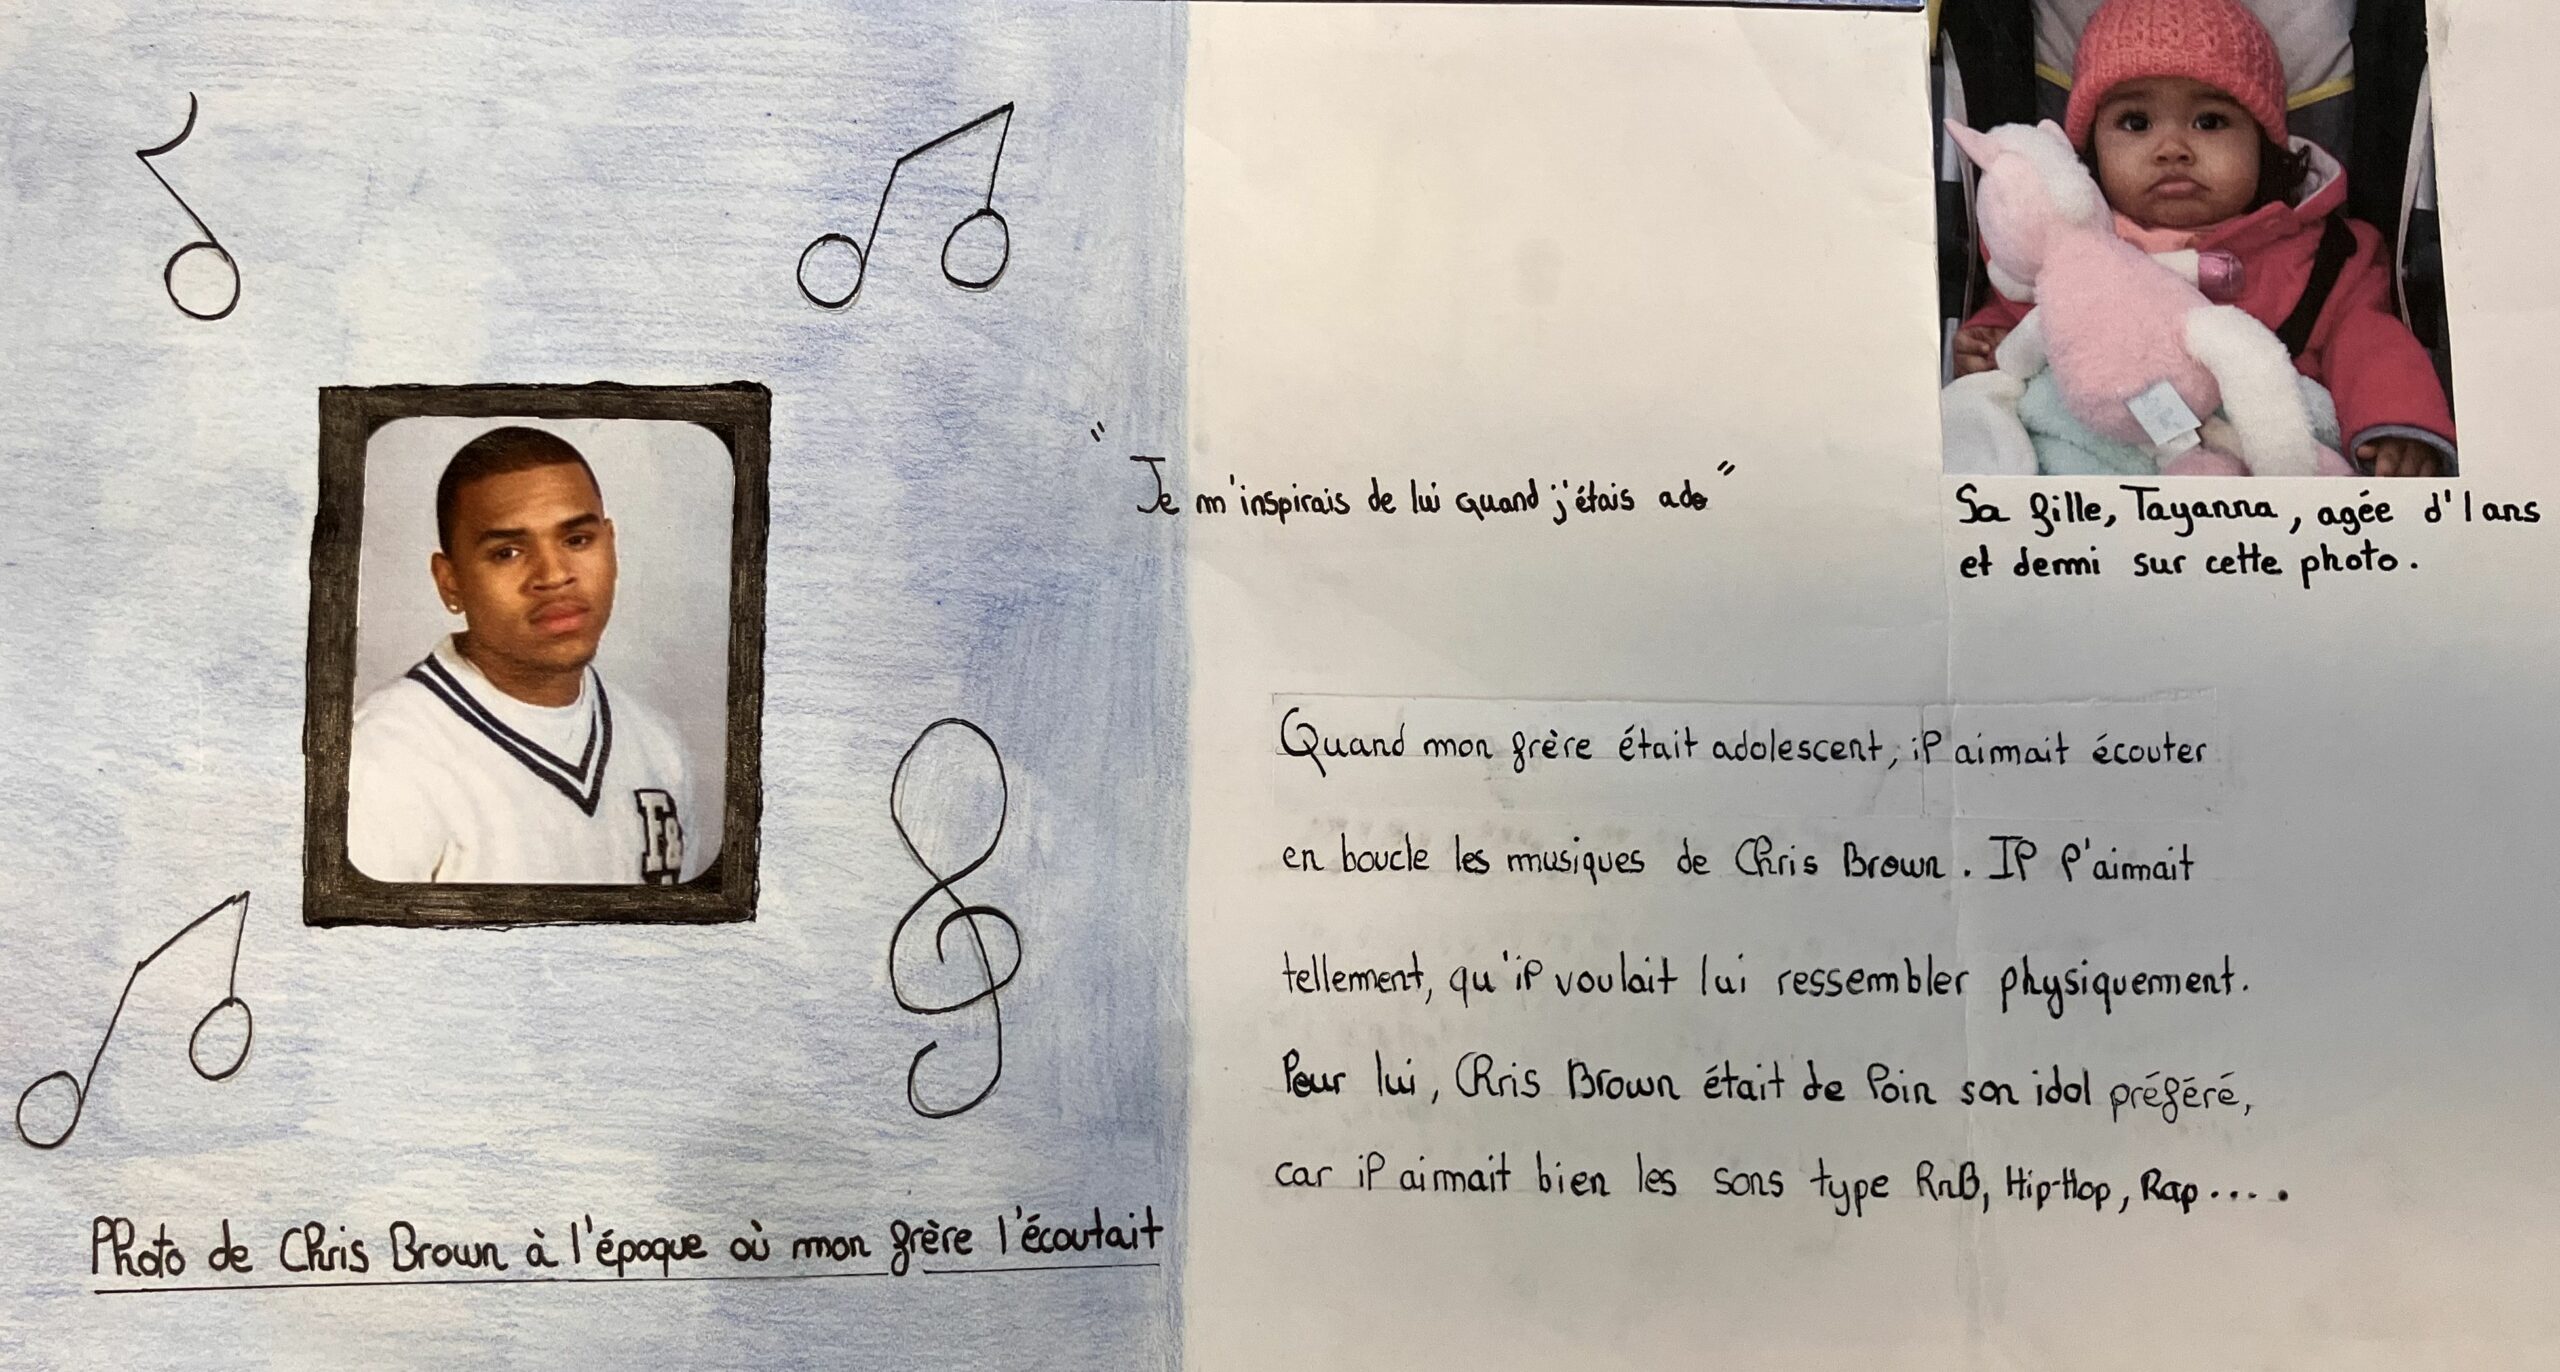 "Je m'inspirais de lui quand j'étais ado"
Sa fille, Tayanna, agée d'1 ans
et demi sur cette photo.
Quand mon frère était adolescent, il aimait écouter
en boucle les musiques de Chris Brown. Il l'aimait
tellement, qu'il voulait lui ressembler physiquement.
Pour lui, Chris Brown était de loin son idol préféré,
car il aimait bien les sons type RnB, Hip-Hop, Rap....
Photo de Chris Brown à l'époque où mon frère l'écoutait